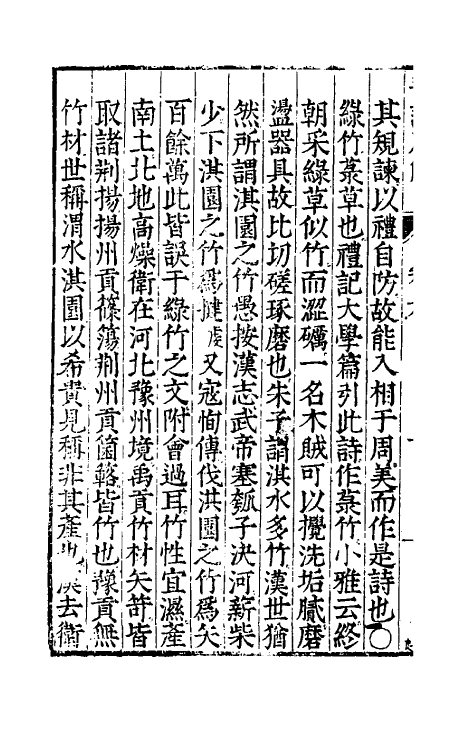 其規諫以禮自防故能入相于周美而作是詩也○
綠竹菉草也禮記大學篇引此詩作菉竹小雅云終
朝采綠草似竹而澀礪一名木賊可以攪洗垢膩磨
盪器具故比切磋琢磨也朱子謂淇水多竹漢世猶
然所謂淇園之竹愚按漢志武帝塞瓠子決河薪柴
少下淇園之竹爲揵又寇恂傳伐淇園之竹爲矢
百餘萬此皆誤于綠竹之文附會過耳竹性宜濕產
南土北地高燥衛在河北豫州境禹貢竹材矢笴皆
取諸荆揚揚州貢篠簜荆州貢箘簵皆竹也豫貢無
竹材世稱渭水淇園以希貴見稱非其產也去衛